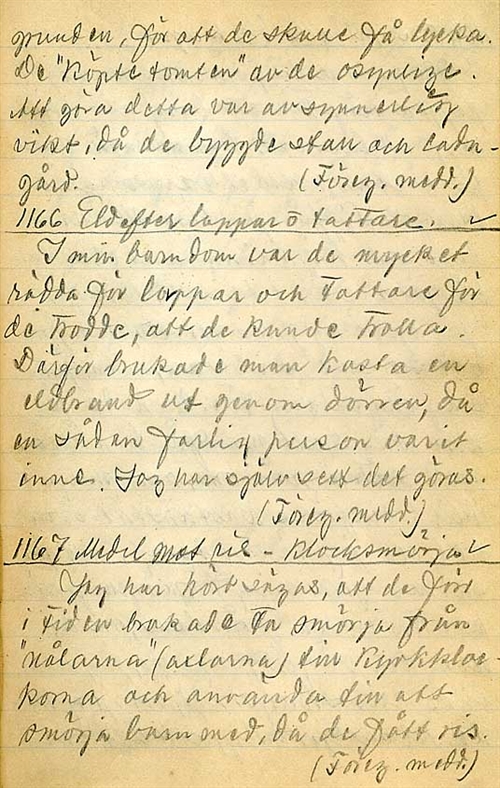 grunden, för att de skulle få lycka.
De "köpte tomten" av de osynlige.
Att göra detta var av synnerlig
vikt, då de byggde stall och ladu-
gård. (Föreg. medd.)
1166 Eld efter lappar o tattare. ✓
I min barndom var de mycket
rädda för lappar och tattare för
de trodde, att de kunde trolla.
Därför brukade man kasta en
eldbrand ut genom dörren, då
en sådan farlig person varit
inne. Jag har själv sett det göras.
(Föreg. medd.)
1167 Medel mot ris - klocksmörja ✓
Jag har hört sägas, att de förr
i tiden brukade ta smörja från
"nålarna" (axlarna) till kyrkkloc-
korna och använda till att
smörja barn med, då de fått ris.
(Föreg. medd.)